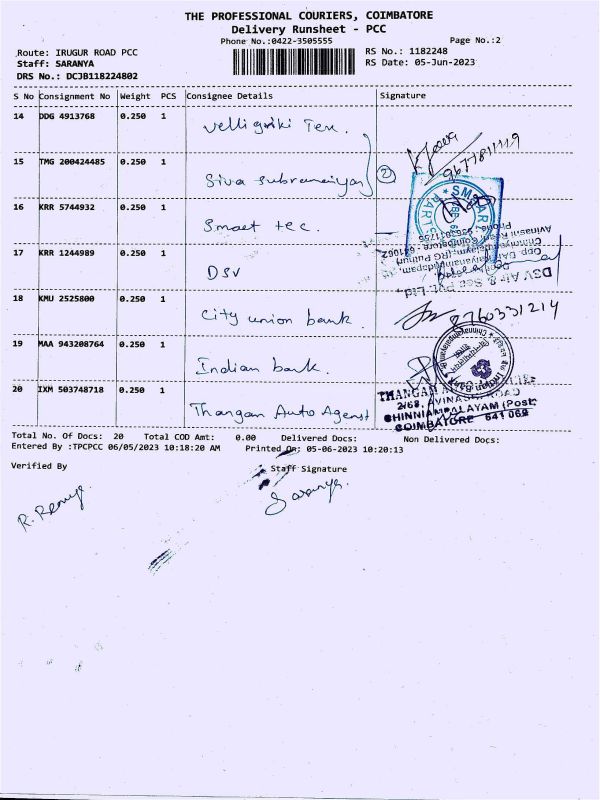 THE PROFESSIONAL COURIERS, COIMBATORE
Delivery Runsheet - PCC
Phone No.:0422-3505555 Page No.:2
Route: IRUGUR ROAD PCC RS No.: 1182248
Staff: SARANYA RS Date: 05-Jun-2023
DRS No.: DCJB118224802
S No Consignment No Weight PCS Consignee Details Signature
14 DDG 4913768 0.250 1 Velligiriki Tex.
9677811119
15 TMG 200424485 0.250 1 Siva subramaniyan 2
16 KRR 5744932 0.250 1 Smart tec.
SMART
PARTS
17 KRR 1244989 0.250 1 DSV
DSV Air & Sea Pvt. Ltd.,
18 KMU 2525800 0.250 1 City union bank 8760331214
19 MAA 943208764 0.250 1 Indian bank.
Indian Bank
20 IXM 503748718 0.250 1 Thangam Auto Agenst
THANGAM
2/68, AVINASHI ROAD
CHINNIAMPALAYAM (Post)
COIMBATORE 641 062
Total No. Of Docs: 20 Total COD Amt: 0.00 Delivered Docs: Non Delivered Docs:
Entered By :TPCPCC 06/05/2023 10:18:20 AM Printed On: 05-06-2023 10:20:13
Verified By Staff Signature
Saranya.